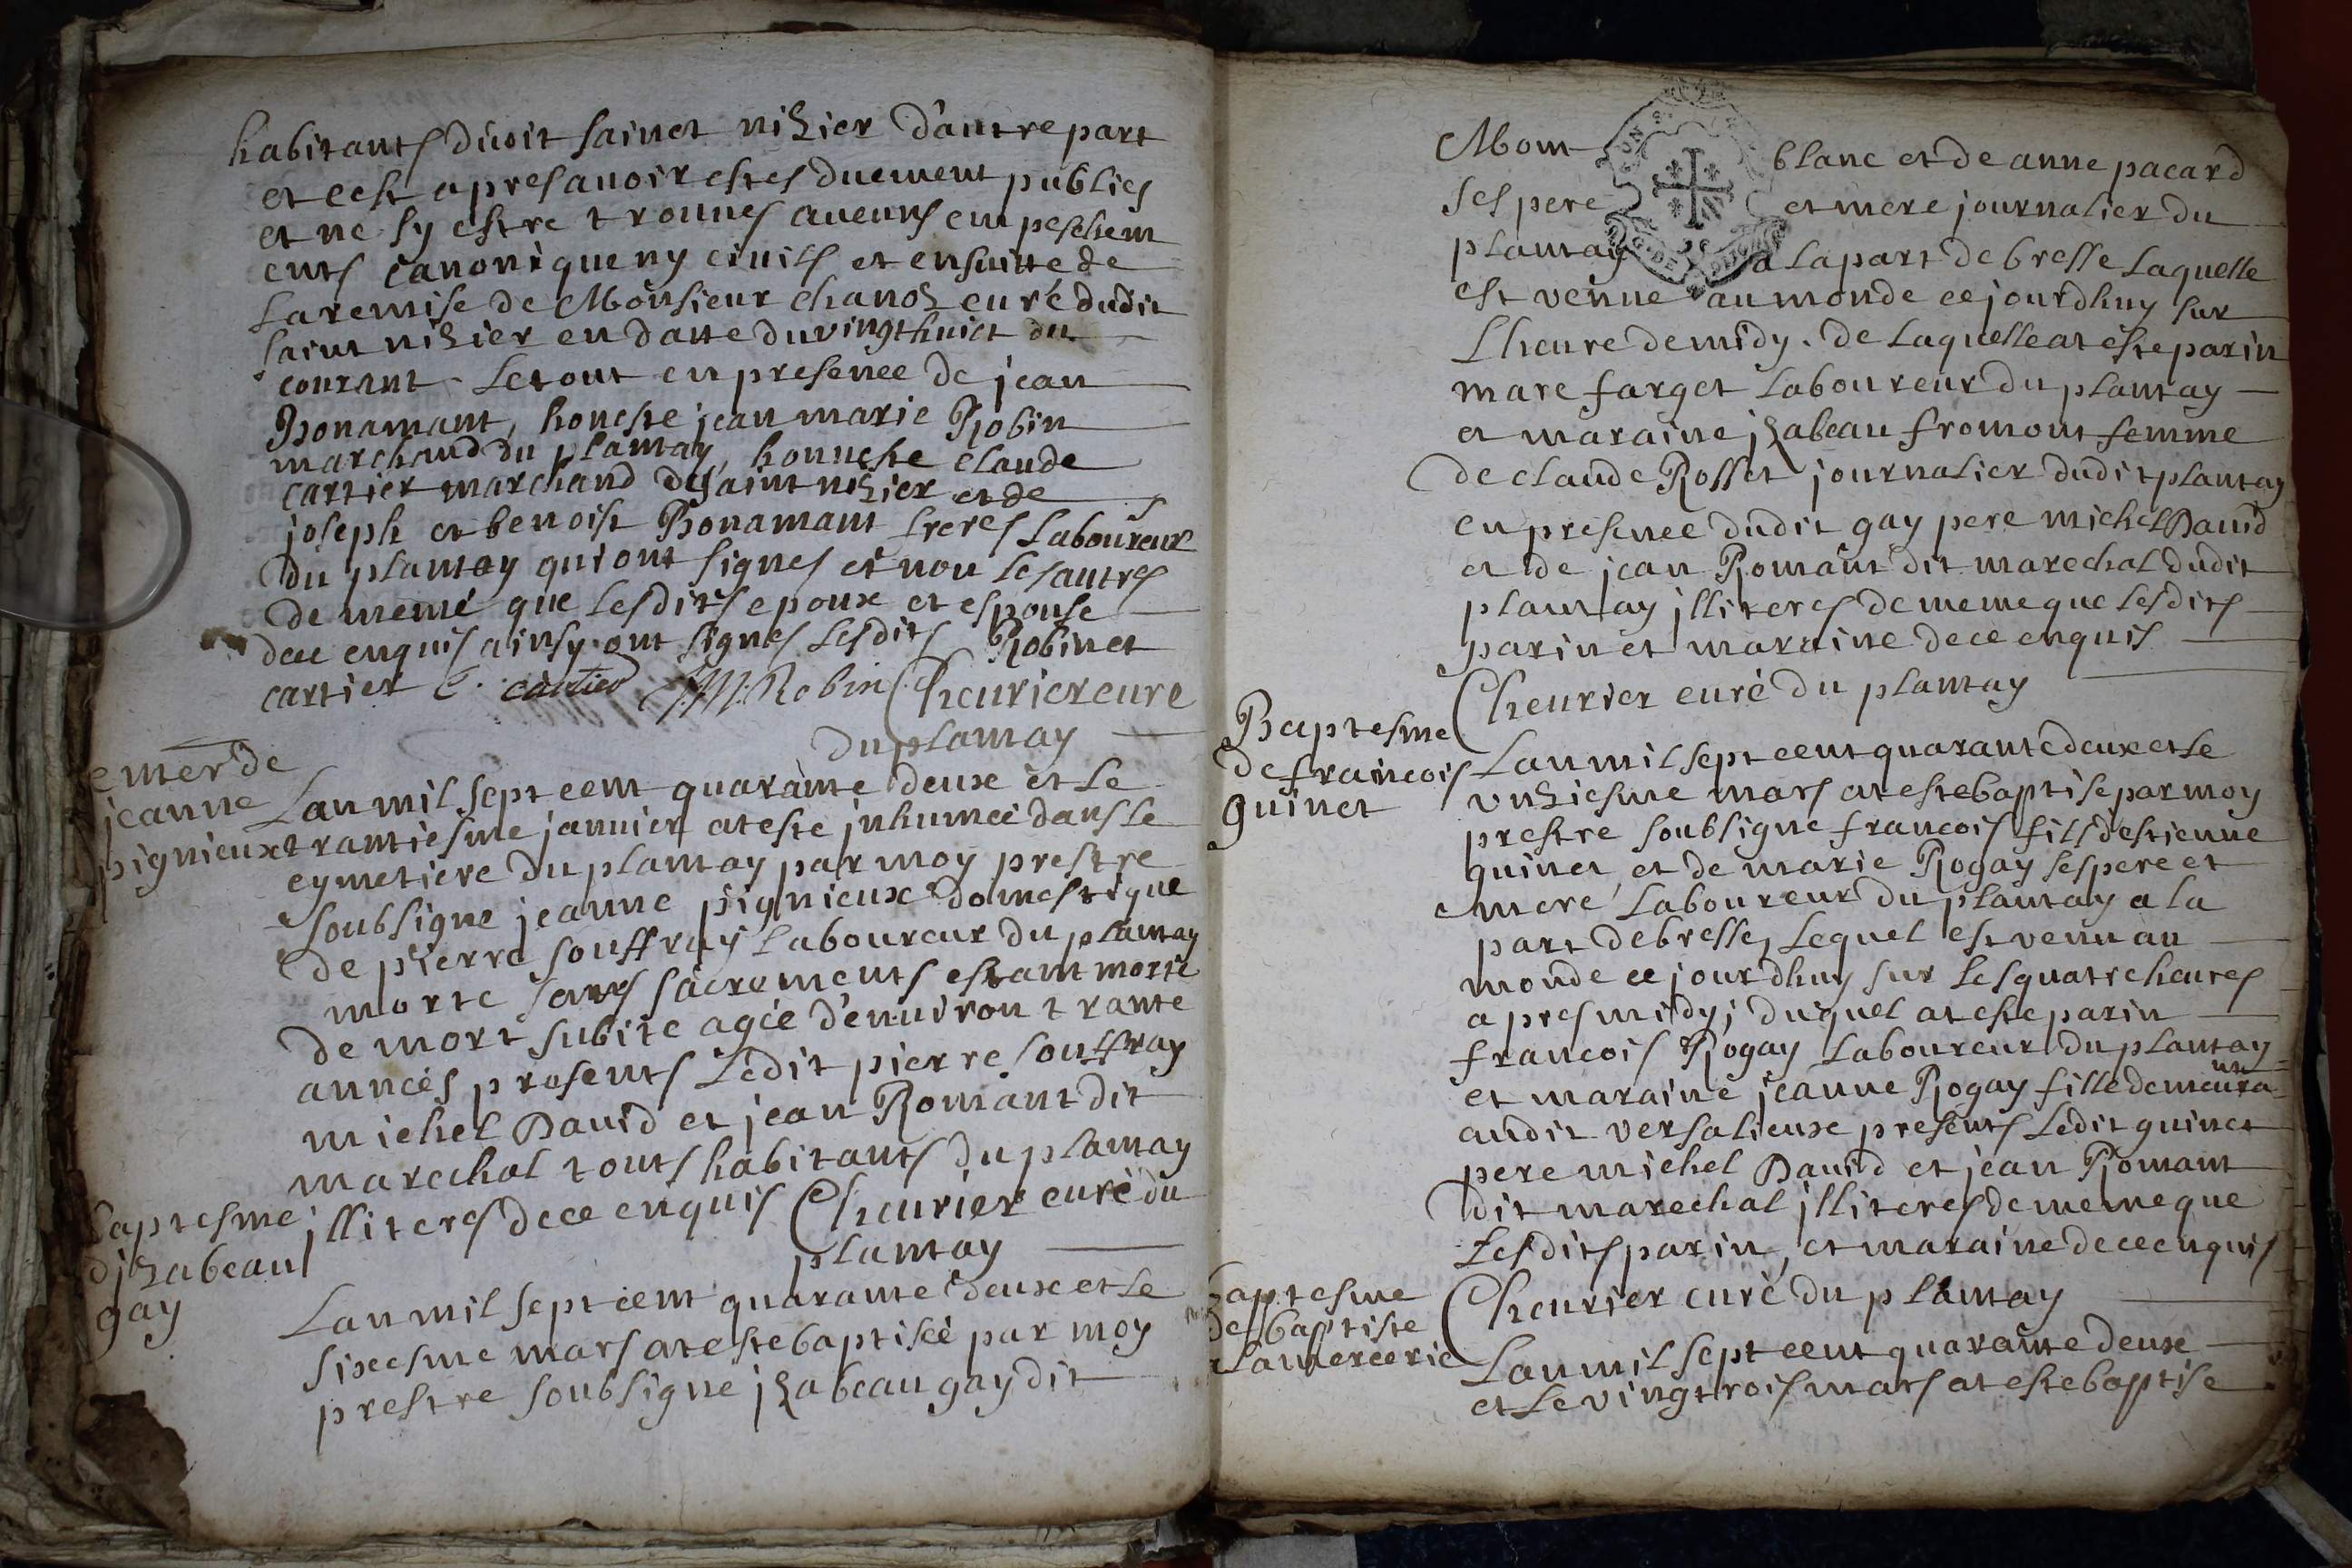 habitants dudit sainct nizier d'autre part
et cest apres auoir estes duement publies
et ne sy estre trouues aucuns empeschem
ents canonique ny ciuils et ensuitte de
la remise de Monsieur Chanoz curé dudit
saint nizier en datte du vingt huict du
courant le tout en presence de jean
Bonamant, honeste jean marie Robin
marchand du plantay, honneste claude
cartier marchand du saint nizier et de
joseph et benoist Bonamant freres Laboureux
du plantay qui ont signes et non les autres
de meme que lesdits epoux et espouse
dece enquis ainsy ont signes lesdits Robin et
cartier C. cartier J.M. Robin Cheurier cure
du plantay
enter de
jeanne
pignieux
Lan mil sept cent quarante deux et le
trantiesme januier at este jnhumée dans le
cymetiere du plantay par moy prestre
soubsigne jeanne pignieux domestique
de pierre souffray laboureur du plantay
morte sans sacrements estant morte
de mort subite agée d'enuiron trante
années presents ledit pierre souffray
michel Dauid et jean Romant dit
marechal touts habitants du plantay
jlliteres dece enquis Cheurier curé du
plantay
baptesme
djzabeau
gay
Lan mil sept cent quarante deux et le
sixesme mars at este baptisée par moy
prestre soubsigne jzabeau gay dit
Mont blanc et de anne pacard
ses pere et mere journalier du
plantay a la part de bresse laquelle
est venue au monde ce jourdhuy sur
Lheure de midy. de laquelle at este parin
marc farget laboureur du plantay
et maraine jzabeau fromont femme
de claude Rosset journalier dudit plantay
en presence dudit gay pere michel Dauid
et de jean Romant dit marechal dudit
plantay jlliteres de meme que lesdits
parin et maraine dece enquis
Cheurier curé du plantay
Baptesme
de francois
quinet
Lan mil sept cent quarante deux et le
vnziesme mars at este baptise par moy
prestre soubsigne francois fils destienne
quinet, et de marie Rogay ses pere et
mere laboureur du plantay a la
part de bresse, lequel est venu au
monde ce jourdhuy sur les quatre heures
apres midy; duquel at este parin
francois Rogay laboureur du plantay
et maraine jeanne Rogay fille demeura
nt
audit versalieux presents ledit quinet
pere michel Dauid et jean Romant
dit marechal jlliteres de meme que
lesdits parin, et maraine dece enquis
Cheurier curé du plantay
baptesme
de baptiste
lamercerie
Lan mil sept cent quarante deux
et le vingt rois mars at este baptise